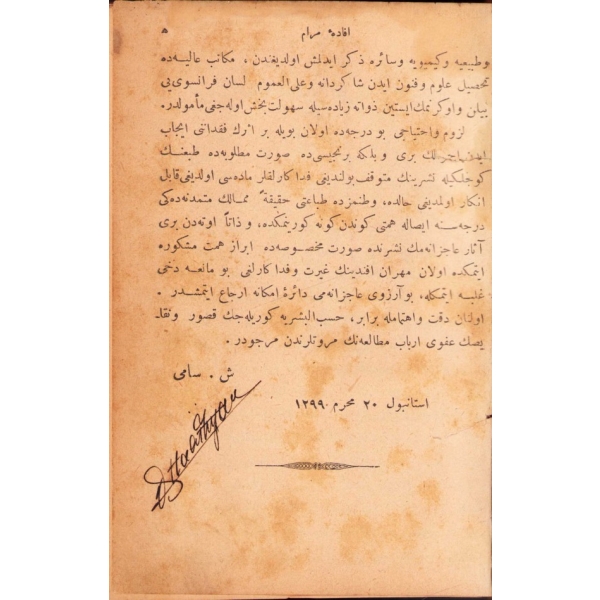 افادهٔ مرام
٥
وطبیعیه وکیمیویه وسائره ذکر ایدلمش اولدیغندن ، مکاتب عالیه‌ده
تحصیل علوم وفنون ایدن شاکردانه وعلی‌العموم لسان فرانسوی‌یی
بیلن واوکرنمك ایستین ذواته زیاده‌سیله سهولت‌بخش اوله‌جغی مأمولدر.
لزوم واحتیاجی بو درجه‌ده اولان بویله بر اثرك فقداننی ایجاب
ایدن اسبابك بری وبلکه برنجیسی‌ده صورت مطلوبه‌ده طبعنك
کوچلکیله نشرینك متوقف بولندیغی فداکارلقلر ماده‌سی اولدیغی قابل
انکار اولمدیغی حالده، وطنمزده طباعتی حقیقةً ممالك متمدنه‌ده‌کی
درجه‌سنه ایصاله همتی کوندن کونه کورینمکده، و ذاتاً اوته‌دن بری
آثار عاجزانه‌مك نشرنده صورت مخصوصه‌ده ابراز همت مشکوره
ایتمکده اولان مهران افندینك غیرت وفداکارلغی بو مانعه دخی
غلبه ایتمکله، بو آرزوی عاجزانه‌می دائرهٔ امکانه ارجاع ایتمشدر .
اولنان دقت واهتمامله برابر، حسب‌البشریه کوریله‌جك قصور ونقا-
یصك عفوی ارباب مطالعه‌نك مروتلرندن مرجودر .
ش . سامی
استانبول ٢٠ محرم ١٢٩٩